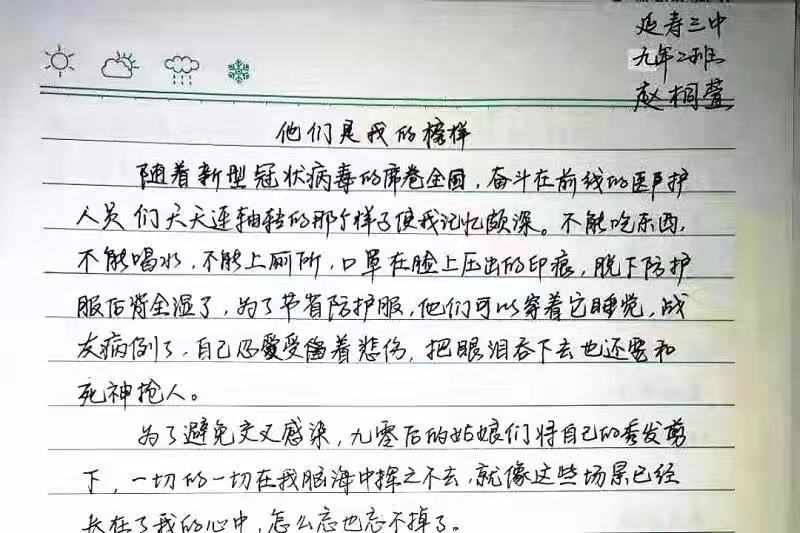 延寿三中
九年二班
赵桐萱
他们是我的榜样
随着新型冠状病毒的席卷全国，奋斗在前线的医护
人员们天天连轴转的那个样子使我记忆颇深。不能吃东西，
不能喝水，不能上厕所，口罩在脸上压出的印痕，脱下防护
服后背全湿了，为了节省防护服，他们可以穿着它睡觉，战
友病倒了，自己忍受着悲伤，把眼泪吞下去也还要和
死神抢人。
为了避免交叉感染，九零后的姑娘们将自己的秀发剪
下，一切的一切在我脑海中挥之不去，就像这些场景已经
长在了我的心中，怎么忘也忘不掉了。